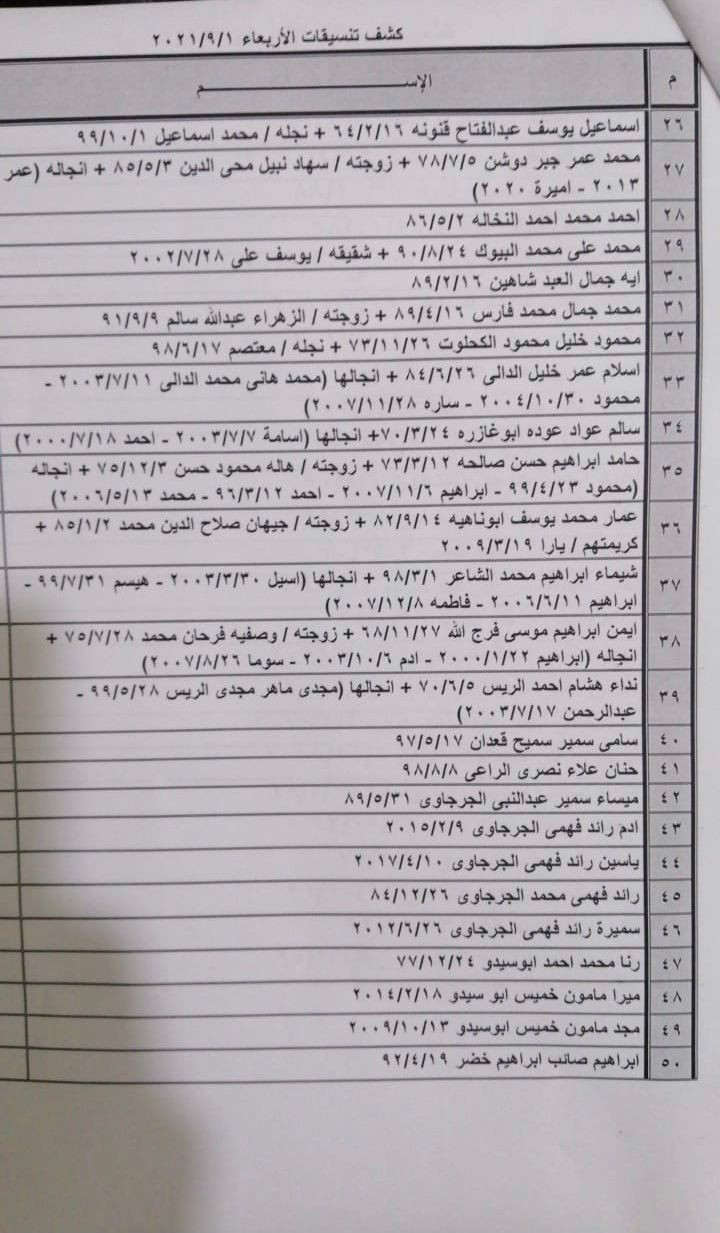 كشف تنسيقات الأربعاء ٢٠٢١/٩/١
م الإســــــــــم
٢٦ اسماعيل يوسف عبدالفتاح قنونه ٦٤/٢/١٦ + نجله / محمد اسماعيل ٩٩/١٠/١
٢٧ محمد عمر جبر دوشن ٧٨/٧/٥ + زوجته / سهاد نبيل محى الدين ٨٥/٥/٣ + انجاله (عمر
٢٠١٣ - اميرة ٢٠٢٠)
٢٨ احمد محمد احمد النخاله ٨٦/٥/٢
٢٩ محمد على محمد البيوك ٩٠/٨/٢٤ + شقيقه / يوسف على ٢٠٠٢/٧/٢٨
٣٠ ايه جمال العبد شاهين ٨٩/٢/١٦
٣١ محمد جمال محمد فارس ٨٩/٤/١٦ + زوجته / الزهراء عبدالله سالم ٩١/٩/٩
٣٢ محمود خليل محمود الكحلوت ٧٣/١١/٢٦ + نجله / معتصم ٩٨/٦/١٧
٣٣ اسلام عمر خليل الدالى ٨٤/٦/٢٦ + انجالها (محمد هانى محمد الدالى ٢٠٠٣/٧/١١ -
محمود ٢٠٠٤/١٠/٣٠ - ساره ٢٠٠٧/١١/٢٨)
٣٤ سالم عواد عوده ابوغازره ٧٠/٣/٢٤+ انجالها (اسامة ٢٠٠٣/٧/٧ - احمد ٢٠٠٠/٧/١٨)
٣٥ حامد ابراهيم حسن صالحه ٧٣/٣/١٢ + زوجته / هاله محمود حسن ٧٥/١٢/٣ + انجاله
(محمود ٩٩/٤/٢٣ - ابراهيم ٢٠٠٧/١١/٦ - احمد ٩٦/٣/١٢ - محمد ٢٠٠٦/٥/١٣)
٣٦ عمار محمد يوسف ابوناهيه ٨٢/٩/١٤ + زوجته / جيهان صلاح الدين محمد ٨٥/١/٢ +
كريمتهم / يارا ٢٠٠٩/٣/١٩
٣٧ شيماء ابراهيم محمد الشاعر ٩٨/٣/١ + انجالها (اسيل ٢٠٠٣/٣/٣٠ - هيسم ٩٩/٧/٣١ -
ابراهيم ٢٠٠٦/٦/١١ - فاطمه ٢٠٠٧/١٢/٨)
٣٨ ايمن ابراهيم موسى فرج الله ٦٨/١١/٢٧ + زوجته / وصفيه فرحان محمد ٧٥/٧/٢٨ +
انجاله (ابراهيم ٢٠٠٠/١/٢٢ - ادم ٢٠٠٣/١٠/٦ - سوما ٢٠٠٧/٨/٢٦)
٣٩ نداء هشام احمد الريس ٧٠/٦/٥ + انجالها (مجدى ماهر مجدى الريس ٩٩/٥/٢٨ -
عبدالرحمن ٢٠٠٣/٧/١٧)
٤٠ سامى سمير سميح قعدان ٩٧/٥/١٧
٤١ حنان علاء نصرى الراعى ٩٨/٨/٨
٤٢ ميساء سمير عبدالنبى الجرجاوى ٨٩/٥/٣١
٤٣ ادم رائد فهمى الجرجاوى ٢٠١٥/٢/٩
٤٤ ياسين رائد فهمى الجرجاوى ٢٠١٧/٤/١٠
٤٥ رائد فهمى محمد الجرجاوى ٨٤/١٢/٢٦
٤٦ سميرة رائد فهمى الجرجاوى ٢٠١٢/٦/٢٦
٤٧ رنا محمد احمد ابوسيدو ٧٧/١٢/٢٤
٤٨ ميرا مامون خميس ابو سيدو ٢٠١٤/٢/١٨
٤٩ مجد مامون خميس ابوسيدو ٢٠٠٩/١٠/١٣
٥٠ ابراهيم صائب ابراهيم خضر ٩٢/٤/١٩